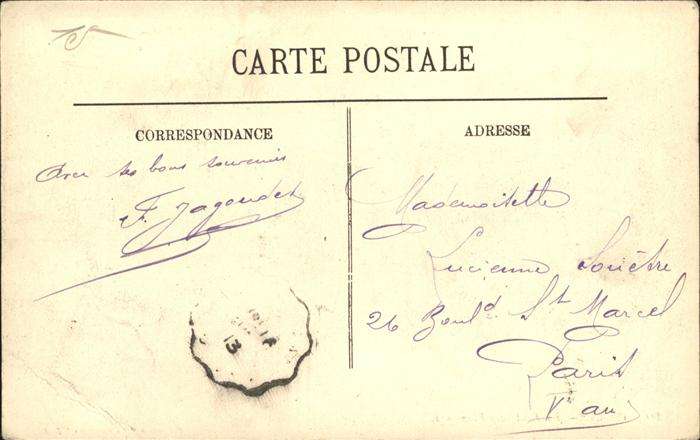 CARTE POSTALE
CORRESPONDANCE
Avec ses bons souvenirs
F. Jagoudet
ADRESSE
Mademoiselle
Lucienne
26 Boul.d St Marcel
Paris
V
13